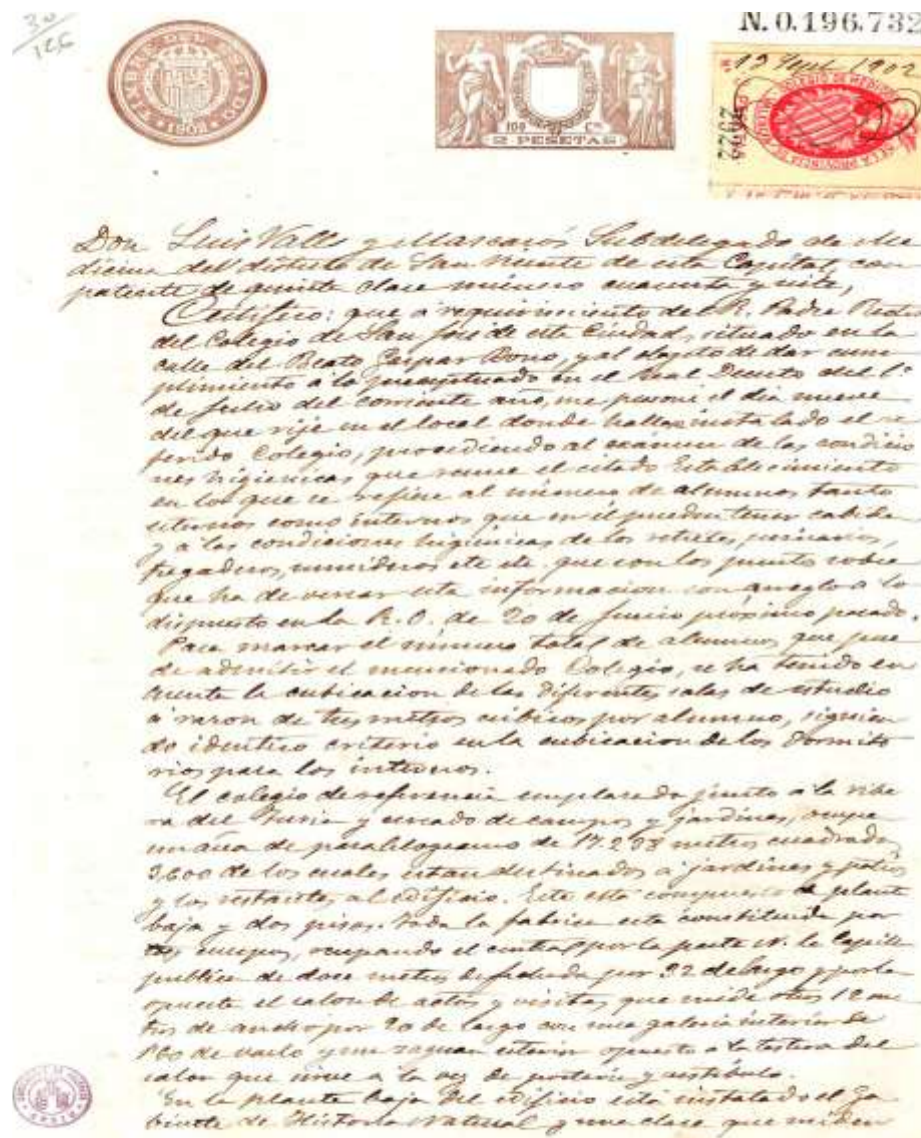 30
126
TIMBRE DEL ESTADO
1902
100 Cs
2 PESETAS
N. 0.196.732
13 Sepbre 1902
COLEGIO DE MEDICOS
DE LA PROVINCIA DE VALENCIA
Don Luis Valls y Mascarós Subdelegado de Me
dicina del distrito de San Vicente de esta Capital, con
patente de quinta clase número cuarenta y siete,
Certifico: que a requirimiento del R. Padre Rector
del Colegio de San José de esta Ciudad, situado en la
calle del Beato Gaspar Bono, y al objeto de dar cum
plimiento a lo preceptuado en el Real Decreto del 1º
de Julio del corriente año, me personé el dia nueve
del que rije en el local donde hallase instalado el re
ferido Colegio, procediendo al exámen de las condicio
nes higienicas que reune el citado Establecimiento
en lo que se refiere al número de alumnos tanto
externos como internos que en él pueden tener cabida
y a las condiciones higiénicas de los retretes, urinarios,
fregaderos, sumideros etc etc. que son los puntos sobre
que ha de versar esta informacion con arreglo a lo
dispuesto en la R. O. de 20 de Junio próximo pasado.
Para marcar el número total de alumnos que pue
de admitir el mencionado Colegio, se ha tenido en
cuenta la cubicacion de las diferentes salas de estudio
a razon de tres metros cúbicos por alumno, siguien
do identico criterio en la cubicacion de los dormito
rios para los internos.
El colegio de referencia emplazado junto a la ribe
ra del Turia y cercado de campos y jardines, ocupa
un área de paralelogramo de 17.298 metros cuadrados
3.600 de los cuales estan destinados a jardines y patios
y los restantes al edificio. Este está compuesto de planta
baja y dos pisos. Toda la fabrica esta constituida por
tres cuerpos, ocupando el central por la parte N. la Capilla
publica de doce metros de fachada por 32 de largo y por la
opuesta el salon de actos y visitas, que mide otros 12 me
tros de ancho por 20 de largo con una galeria interior de
de vuelo y un zaguan exterior opuesto a la testera del
salon que sirve a la vez de porteria y vestíbulo.
En la planta baja del edificio está instalado el Ga
binete de Historia Natural y una clase que miden